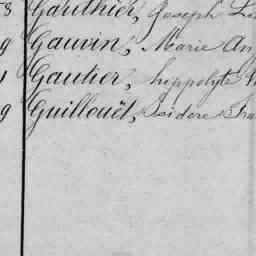 8 Gauthier, Joseph
9 Gauvin, Marie An
1 Gautier, hippolyte
9 Guillouët, Isidore Fra